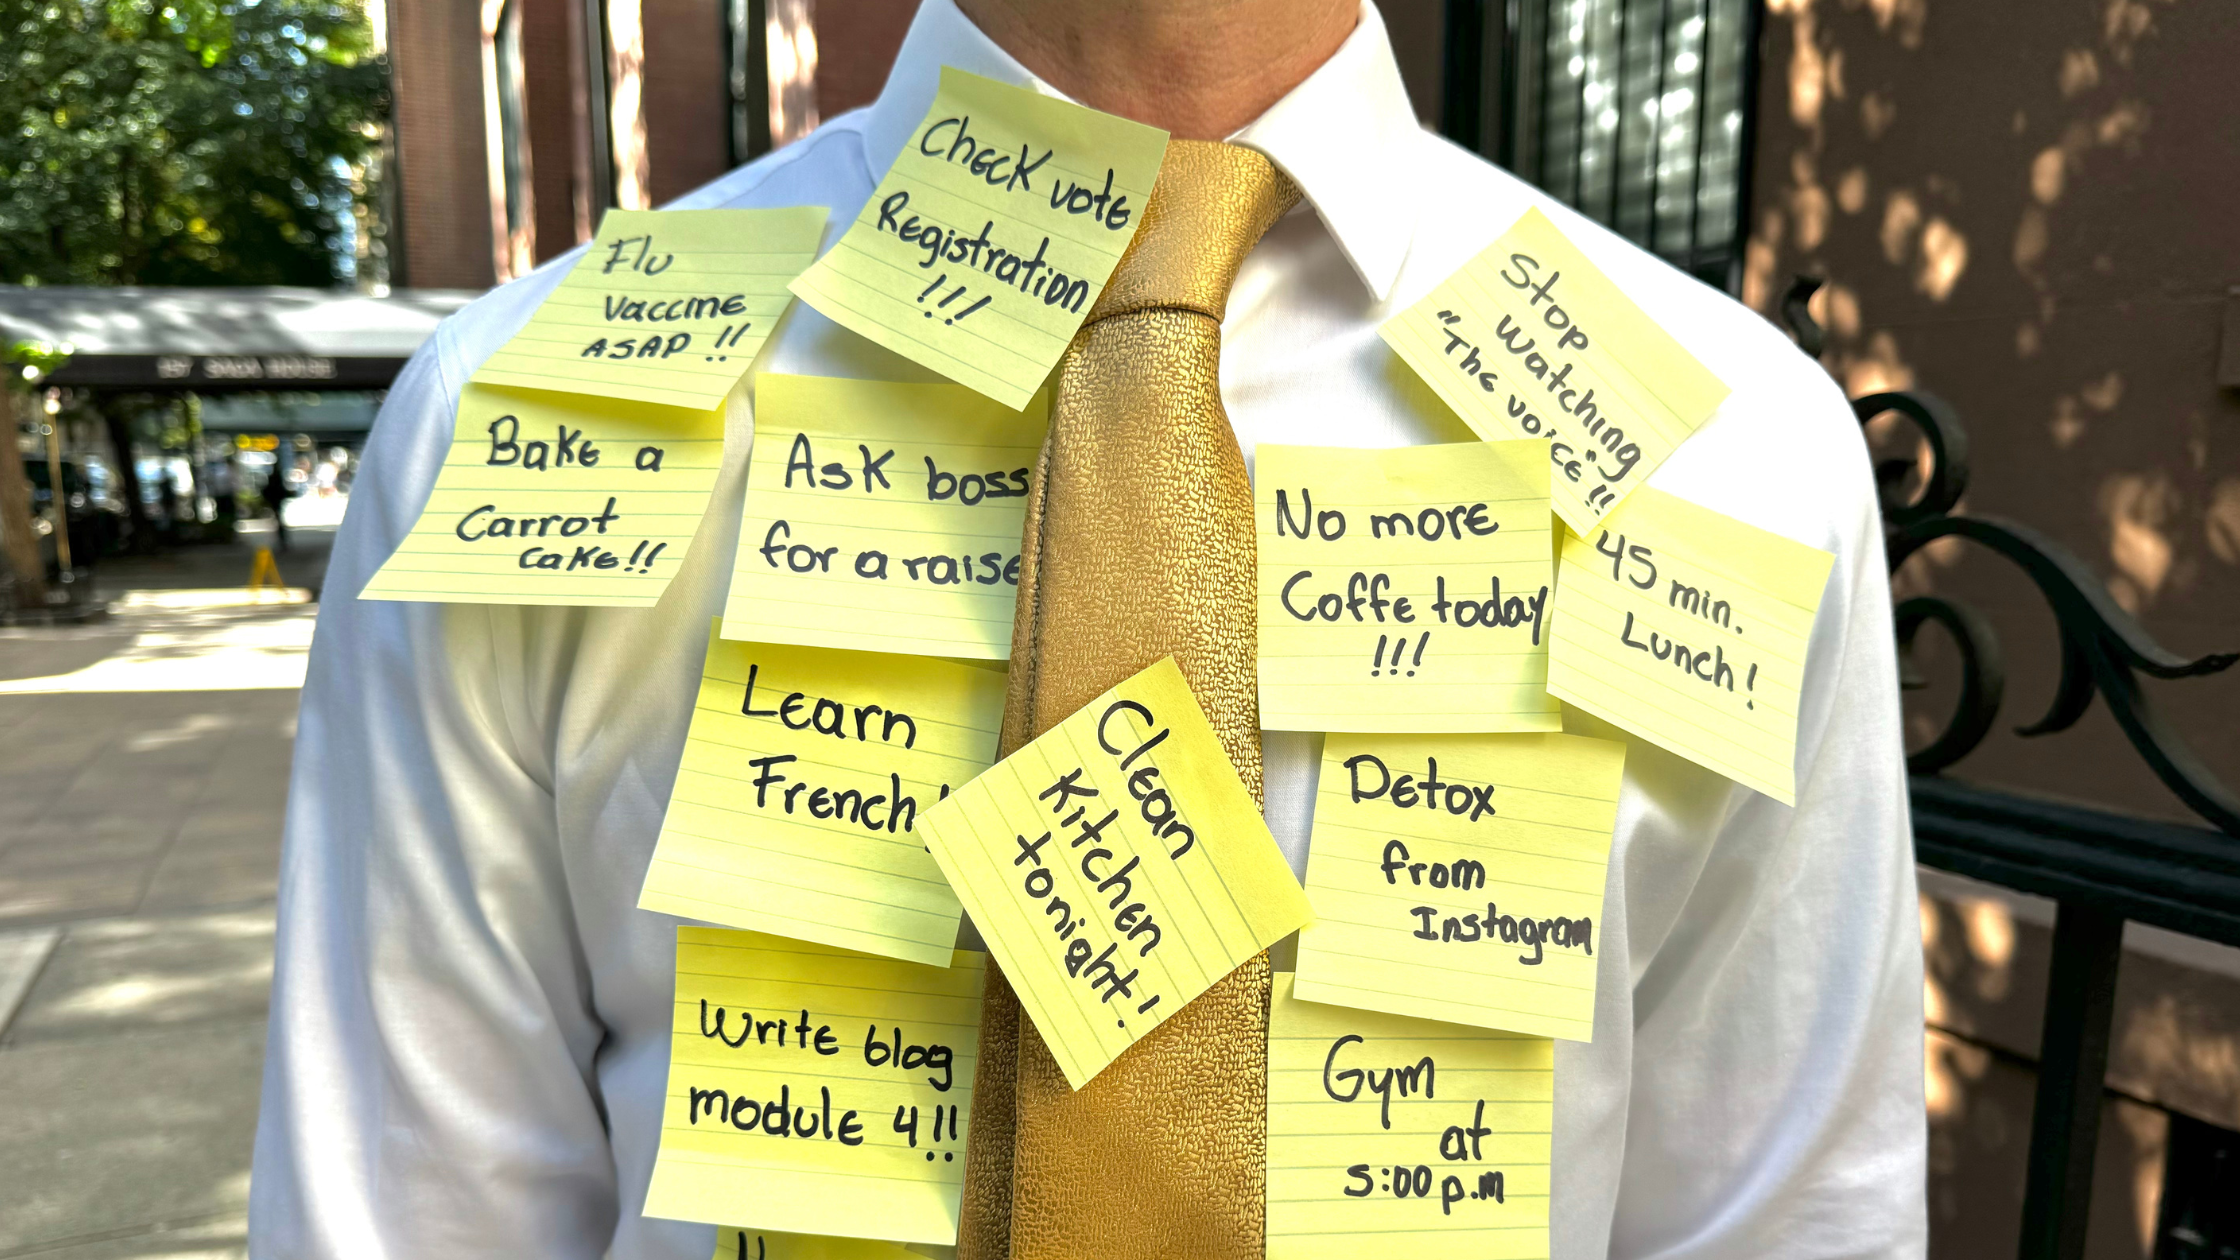 Check vote
Registration
!!!
Flu
vaccine
ASAP !!
Stop
Watching
"The voice"!!
Bake a
Carrot
cake!!
Ask boss
for a raise
No more
Coffe today
!!!
45 min.
Lunch!
Learn
French!
Clean
Kitchen
tonight!
Detox
from
Instagram
Write blog
module 4!!
Gym
at
5:00 p.m